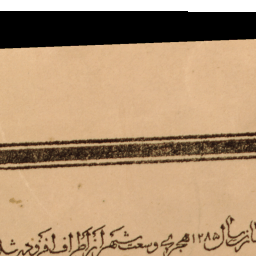 از سال ۱۲۸۵ هجری وسعت شهر از اطراف افزوده شد